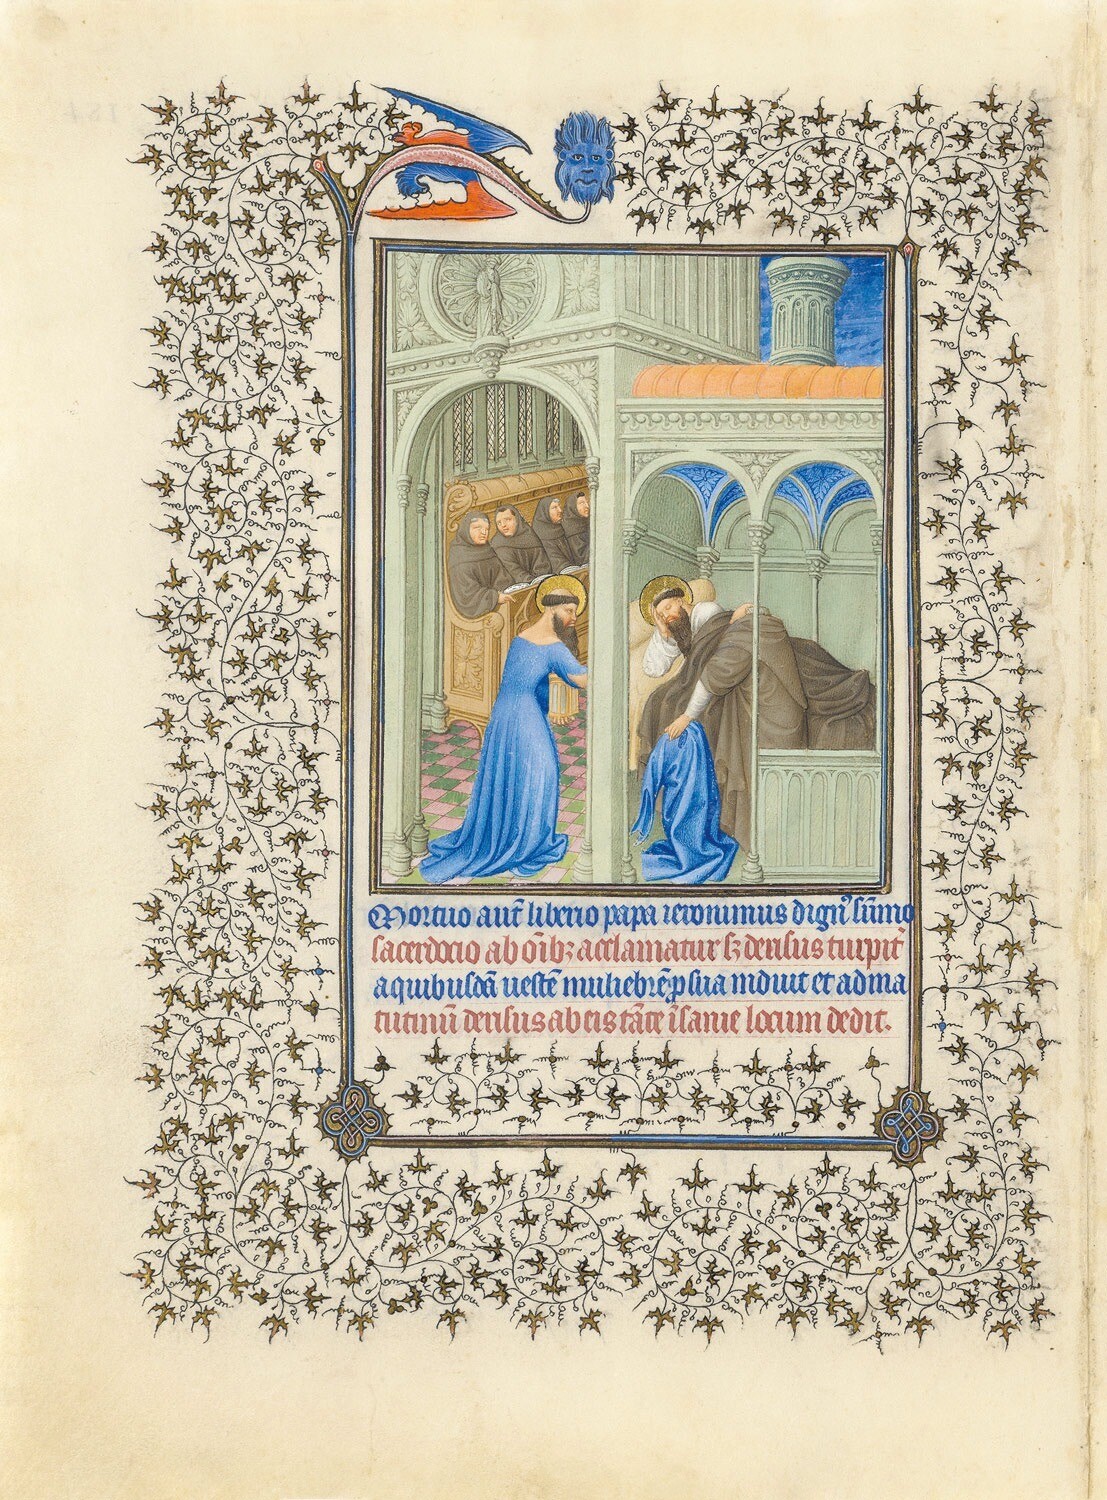 Mortuo aut̄ liberio papa ieronimus dign᷒ sūmo
sacerdocio ab oīb; acclamatur s; derisus turpit̄
a quibusdā uestē muliebrē ꝓ sua induit et ad ma
tutinū derisus ab eis tāte īsanie locum dedit.